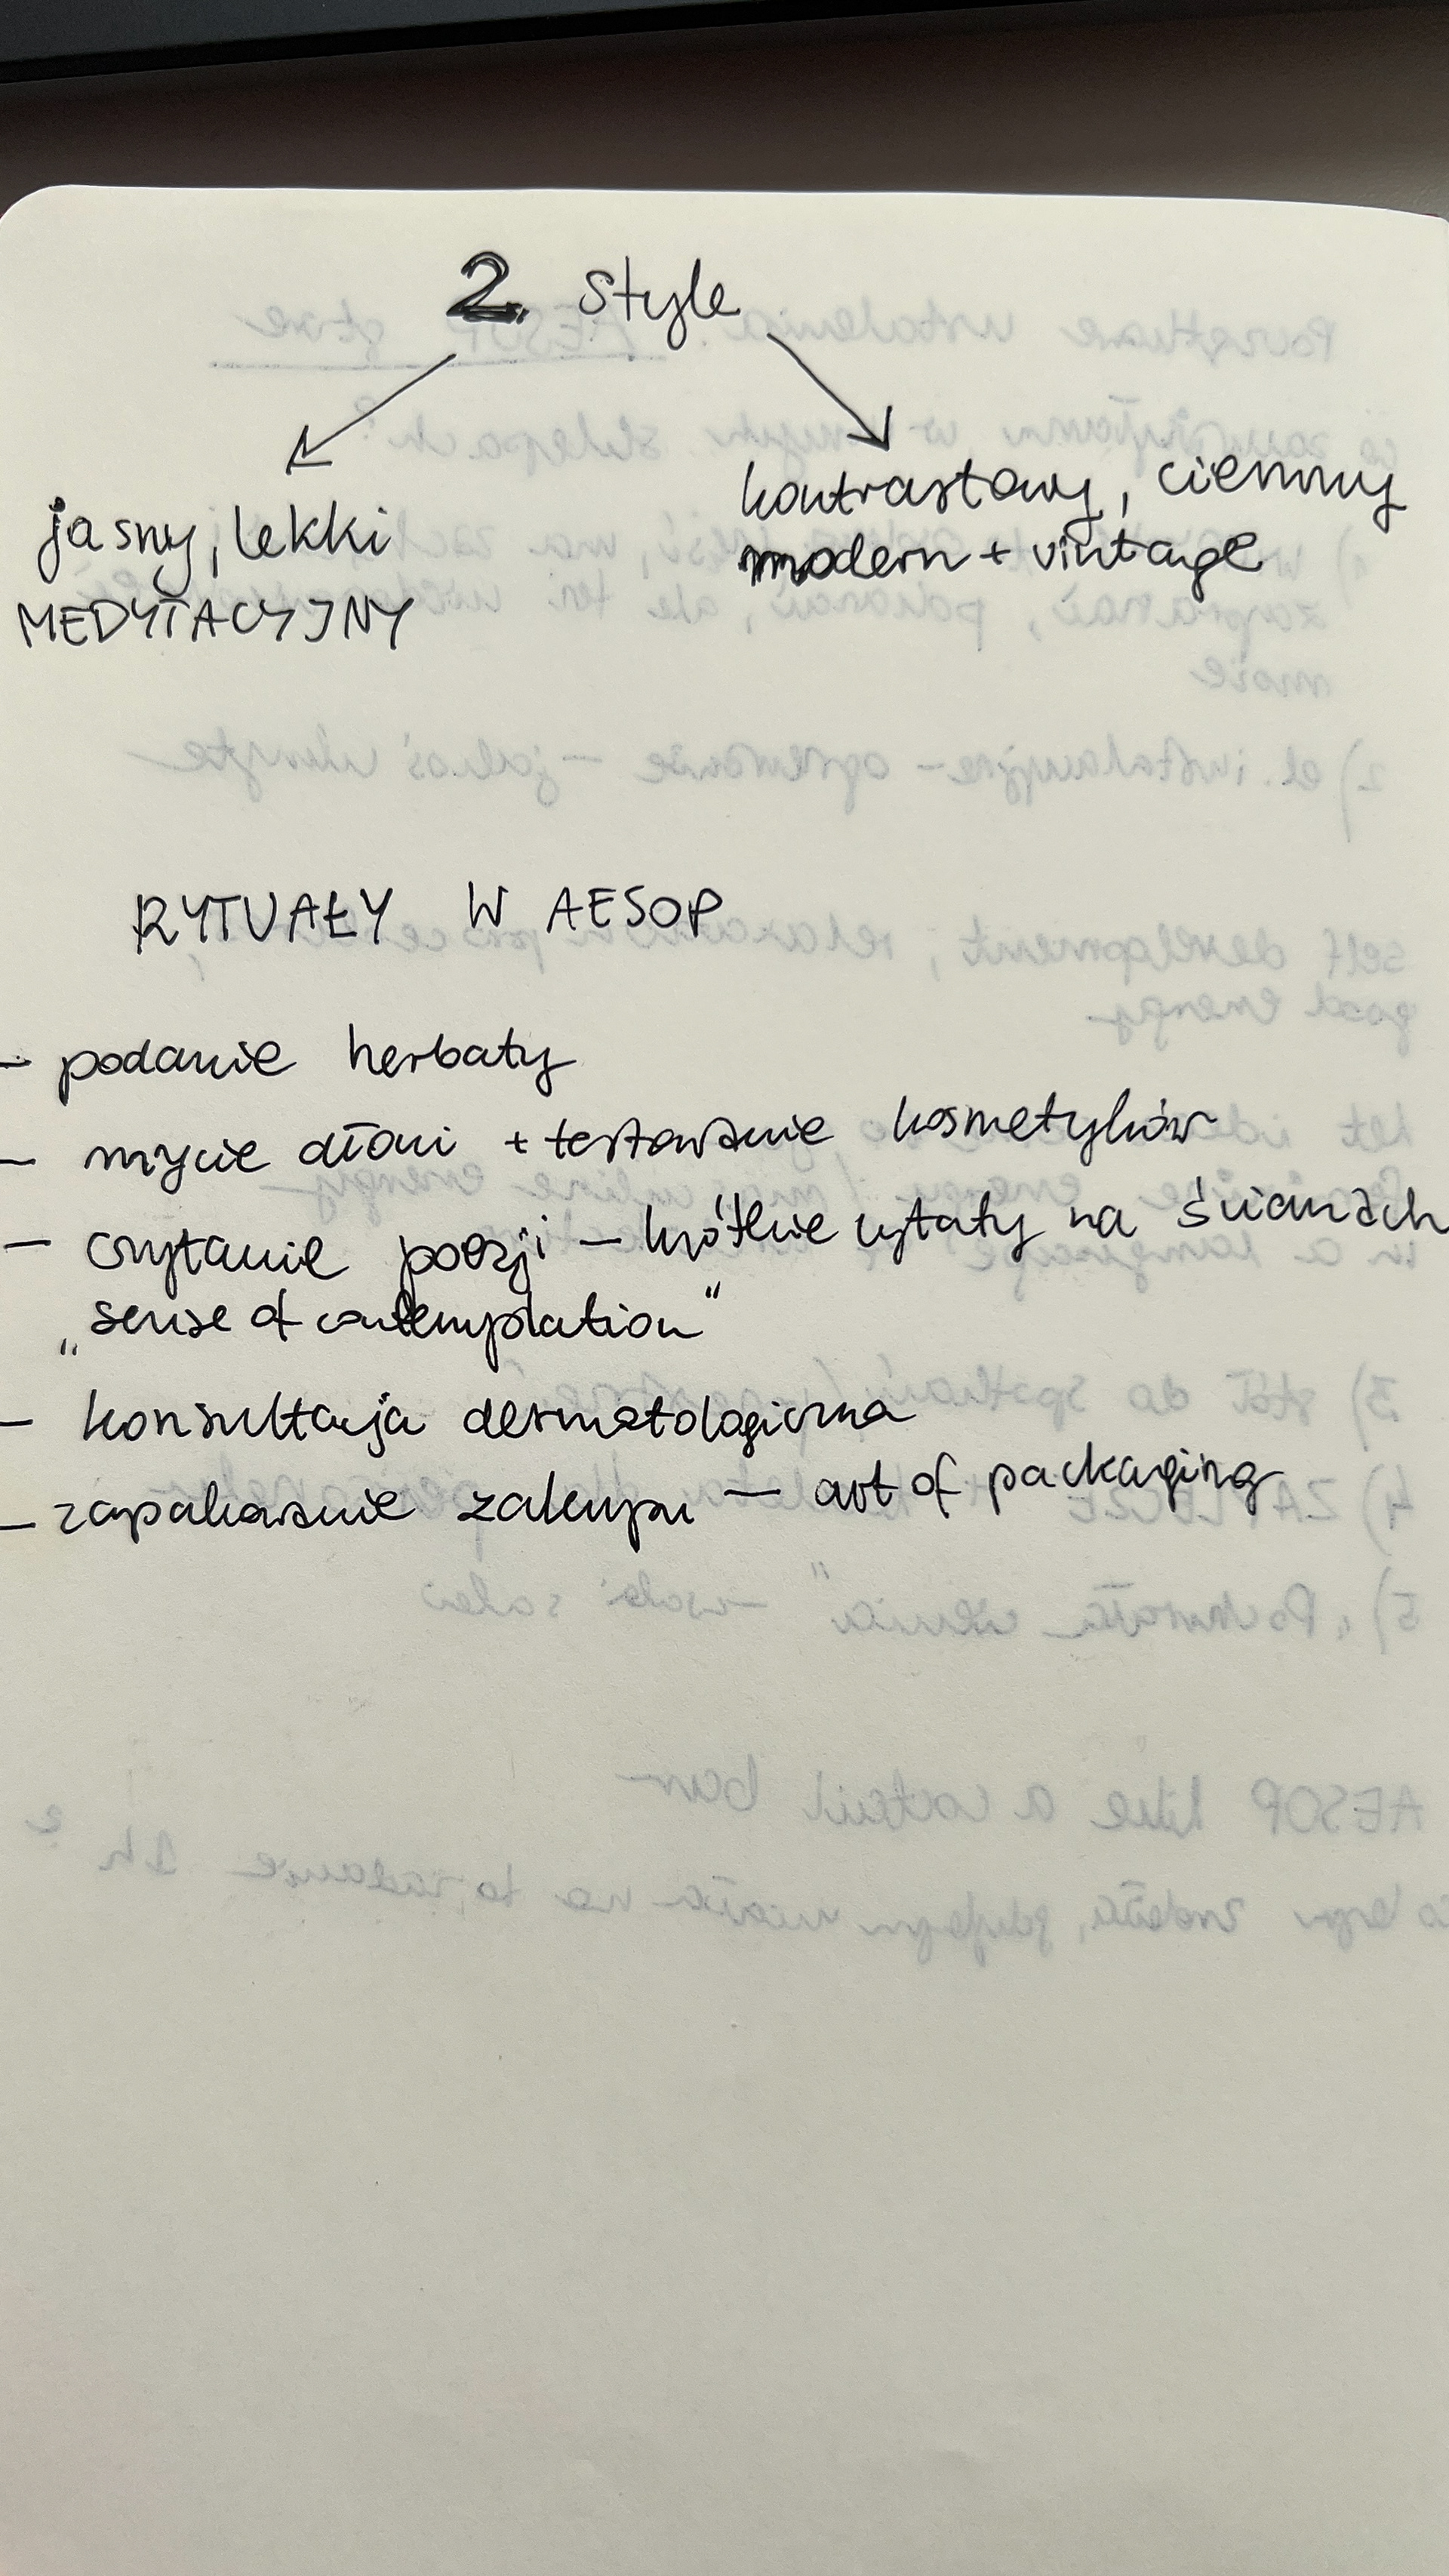 2. style
jasny, lekki
MEDYTACYJNY
kontrastowy, ciemny
modern + vintage
RYTUAŁY W AESOP
- podanie herbaty
- mycie dłoni + testowanie kosmetyków
- czytanie poezji - krótkie cytaty na ścianach
„sense of contemplation"
- konsultacja dermatologiczna
- zapakowanie zakupu - art of packaging